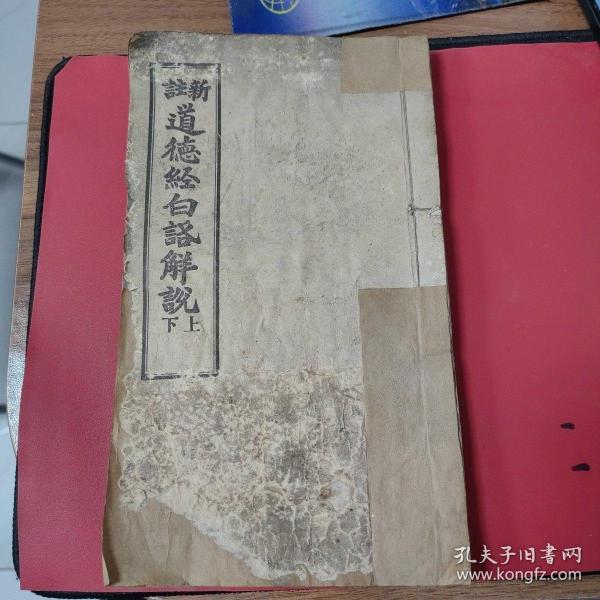 新註
道德經白話解說
上下
孔夫子旧書网
www.kongfz.com